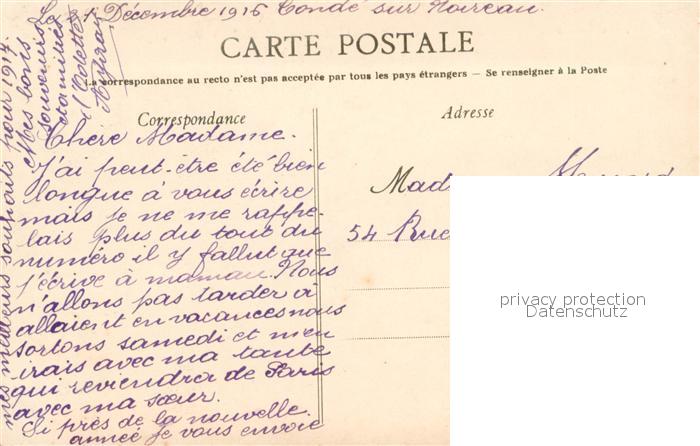 Le 21 Décembre 1916 Condé sur Noireau.
CARTE POSTALE
La correspondance au recto n'est pas acceptée par tous les pays étrangers — Se renseigner à la Poste
Correspondance
Adresse
Chère Madame.
J'ai peut-être été bien
longue à vous écrire
mais je ne me rappe-
lais plus du tout du
numéro il y fallut que
j'écrive à maman. Nous
n'allons pas tarder à
allaient en vacances nous
sortons samedi et m'en
irais avec ma tante
qui reviendra de Paris
avec ma sœur.
Si près de la nouvelle
année je vous envoie
mes meilleurs souhaits pour 1917.
Mes bons
souvenirs
et amitiés
Colette
Mad
54 Rue
privacy protection
Datenschutz